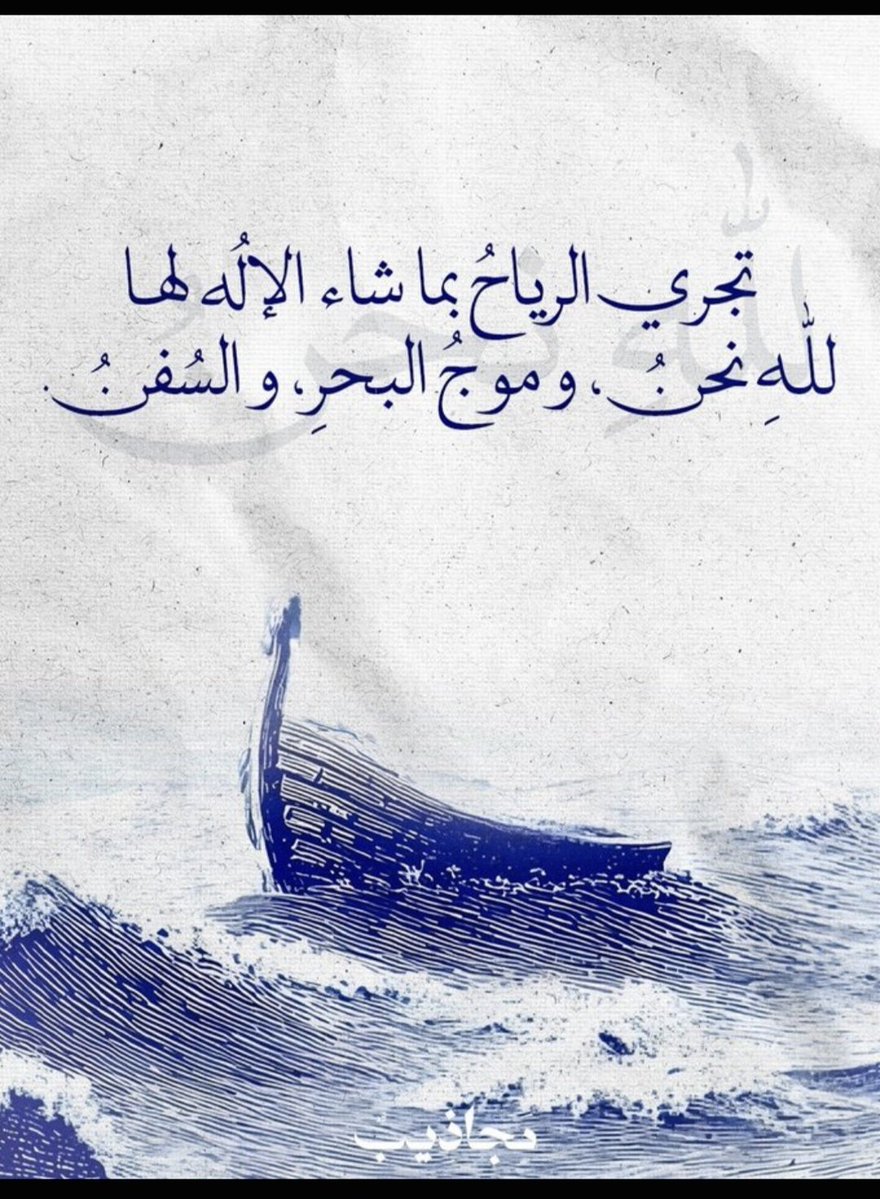 تجري الرياحُ بما شاء الإلُه لها
للّهِ نحنُ ، و موجُ البحرِ، و السُفنُ .
للّهِ نحنُ
مجاذيب